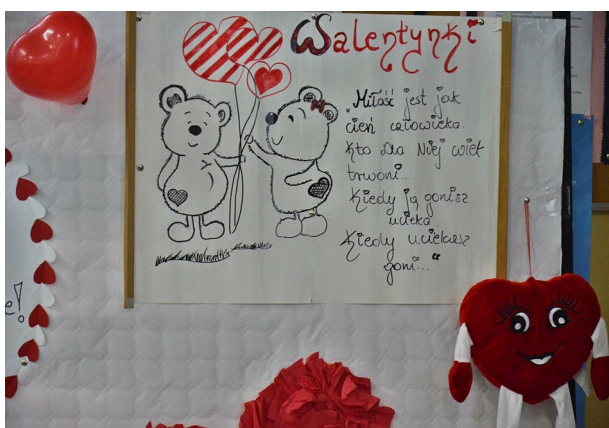 Walentynki
"Miłość jest jak
cień człowieka.
Kto dla Niej wiek
trwoni...
Kiedy ją gonisz
ucieka.
Kiedy uciekasz
goni..."
e!